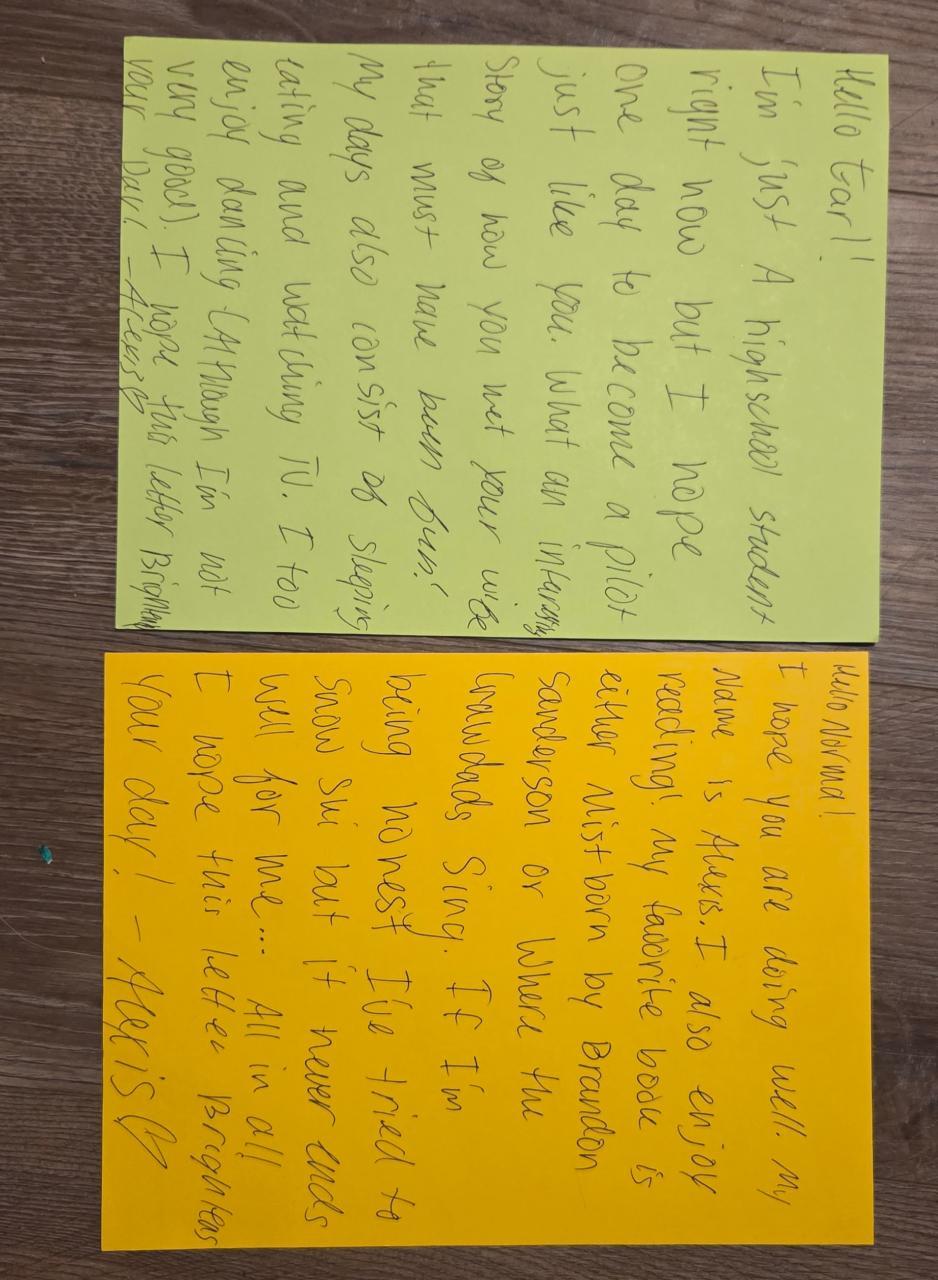 Hello Earl!
I'm just A highschool student
right now but I hope
one day to become a pilot
just like you. What an interesting
Story of how you met your wife
that must have been fun!
My days also consist of sleeping
eating and watching TV. I too
enjoy dancing (Although I'm not
very good). I hope this letter Brightens
your Day! - Alexis
Hello Norma!
I hope you are doing well. My
Name is Alexis. I also enjoy
reading! My favorite book is
either Mistborn by Brandon
Sanderson or Where the
Crawdads Sing. If I'm
being honest I've tried to
Snow Ski but it never ends
well for me... All in all
I hope this letter Brightens
Your day! - Alexis